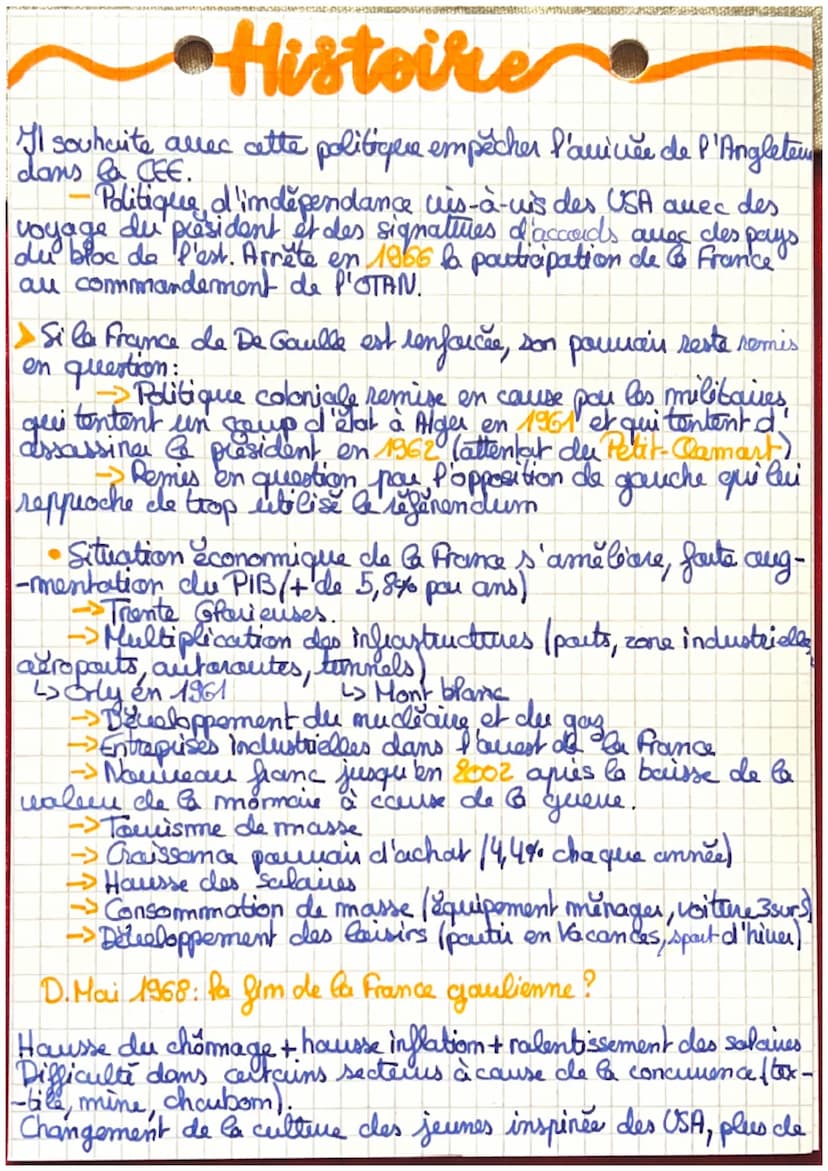 Histoire
Il souhaite avec cette politique empêcher l'arrivée de l'Angleterre
dans la CEE.
- Politique d'indépendance vis-à-vis des USA avec des
voyage du président et des signatures d'accords avec des pays
du bloc de l'est. Arrête en 1966 la participation de la France
au commandement de l'OTAN.
> Si la France de De Gaulle est renforcée, son pouvoir reste remis
en question:
-> Politique coloniale remise en cause par les militaires
qui tentent un coup d'état à Alger en 1961 et qui tentent d'
assassiner le président en 1962 (attentat du Petit-Clamart)
-> Remis en question par l'opposition de gauche qui lui
reproche de trop utilisé le référendum
• Situation économique de la France s'améliore, forte aug-
-mentation du PIB (+ de 5,8% par ans)
-> Trente Glorieuses.
-> Multiplication des infrastructures (ports, zone industrielle,
aéroports, autoroutes, tunnels)
↳ Orly en 1961 ↳ Mont blanc
-> Développement du nucléaire et du gaz
-> Entreprises industrielles dans l'ouest de la France
-> Nouveau franc jusqu'en 2002 après la baisse de la
valeur de la monnaie à cause de la guerre.
-> Tourisme de masse
-> Croissance pouvoir d'achat (4,4% chaque année)
-> Hausse des salaires
-> Consommation de masse (équipement ménager, voiture 3 sur 5)
-> Développement des loisirs (partir en vacances, sport d'hiver)
D. Mai 1968: la fin de la France gaulienne ?
Hausse du chômage + hausse inflation + ralentissement des salaires
Difficulté dans certains secteurs à cause de la concurrence (tex-
-tile, mine, charbon).
Changement de la culture des jeunes inspirée des USA, plus de